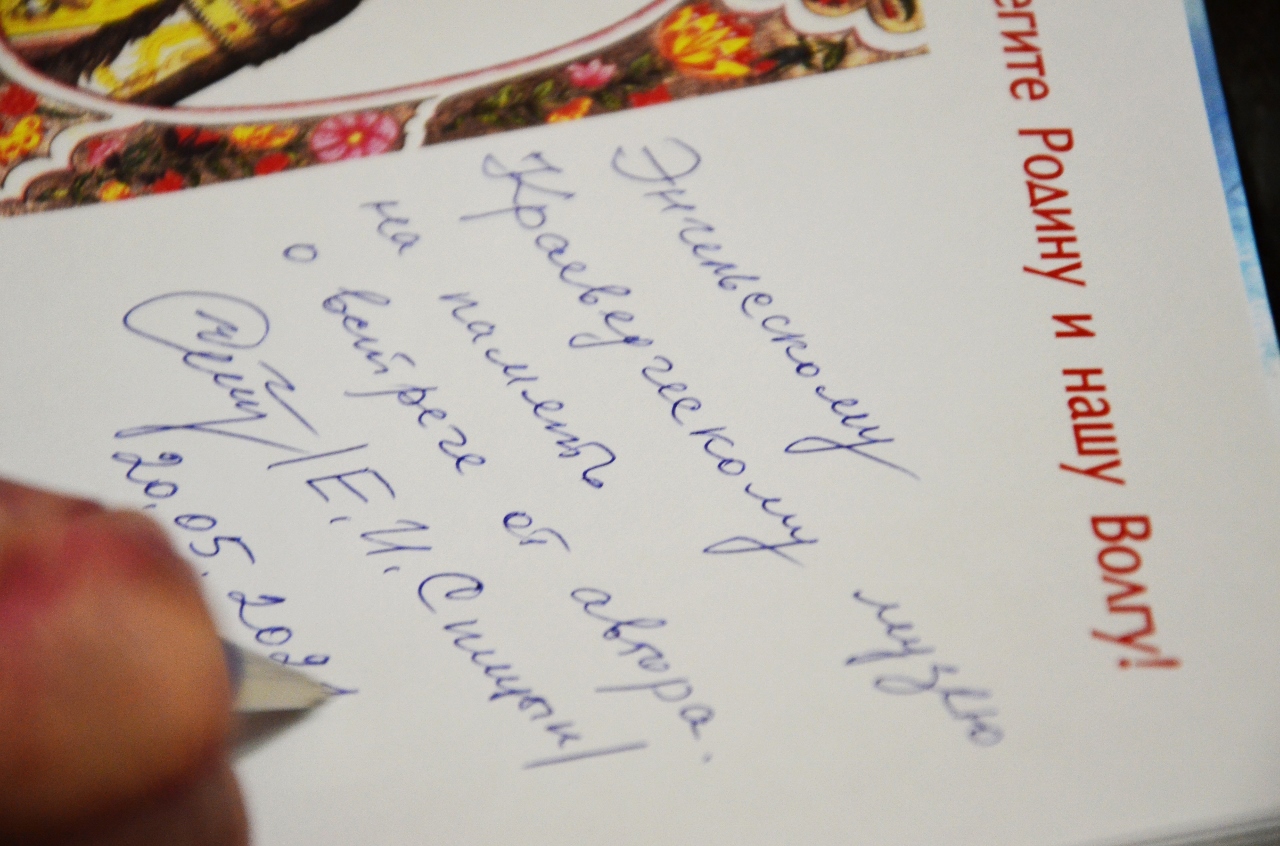 егите Родину и нашу Волгу!
Энгельсскому
Краеведческому музею
на память
о встрече от автора.
/Е.И. Спицын/
20.05.202